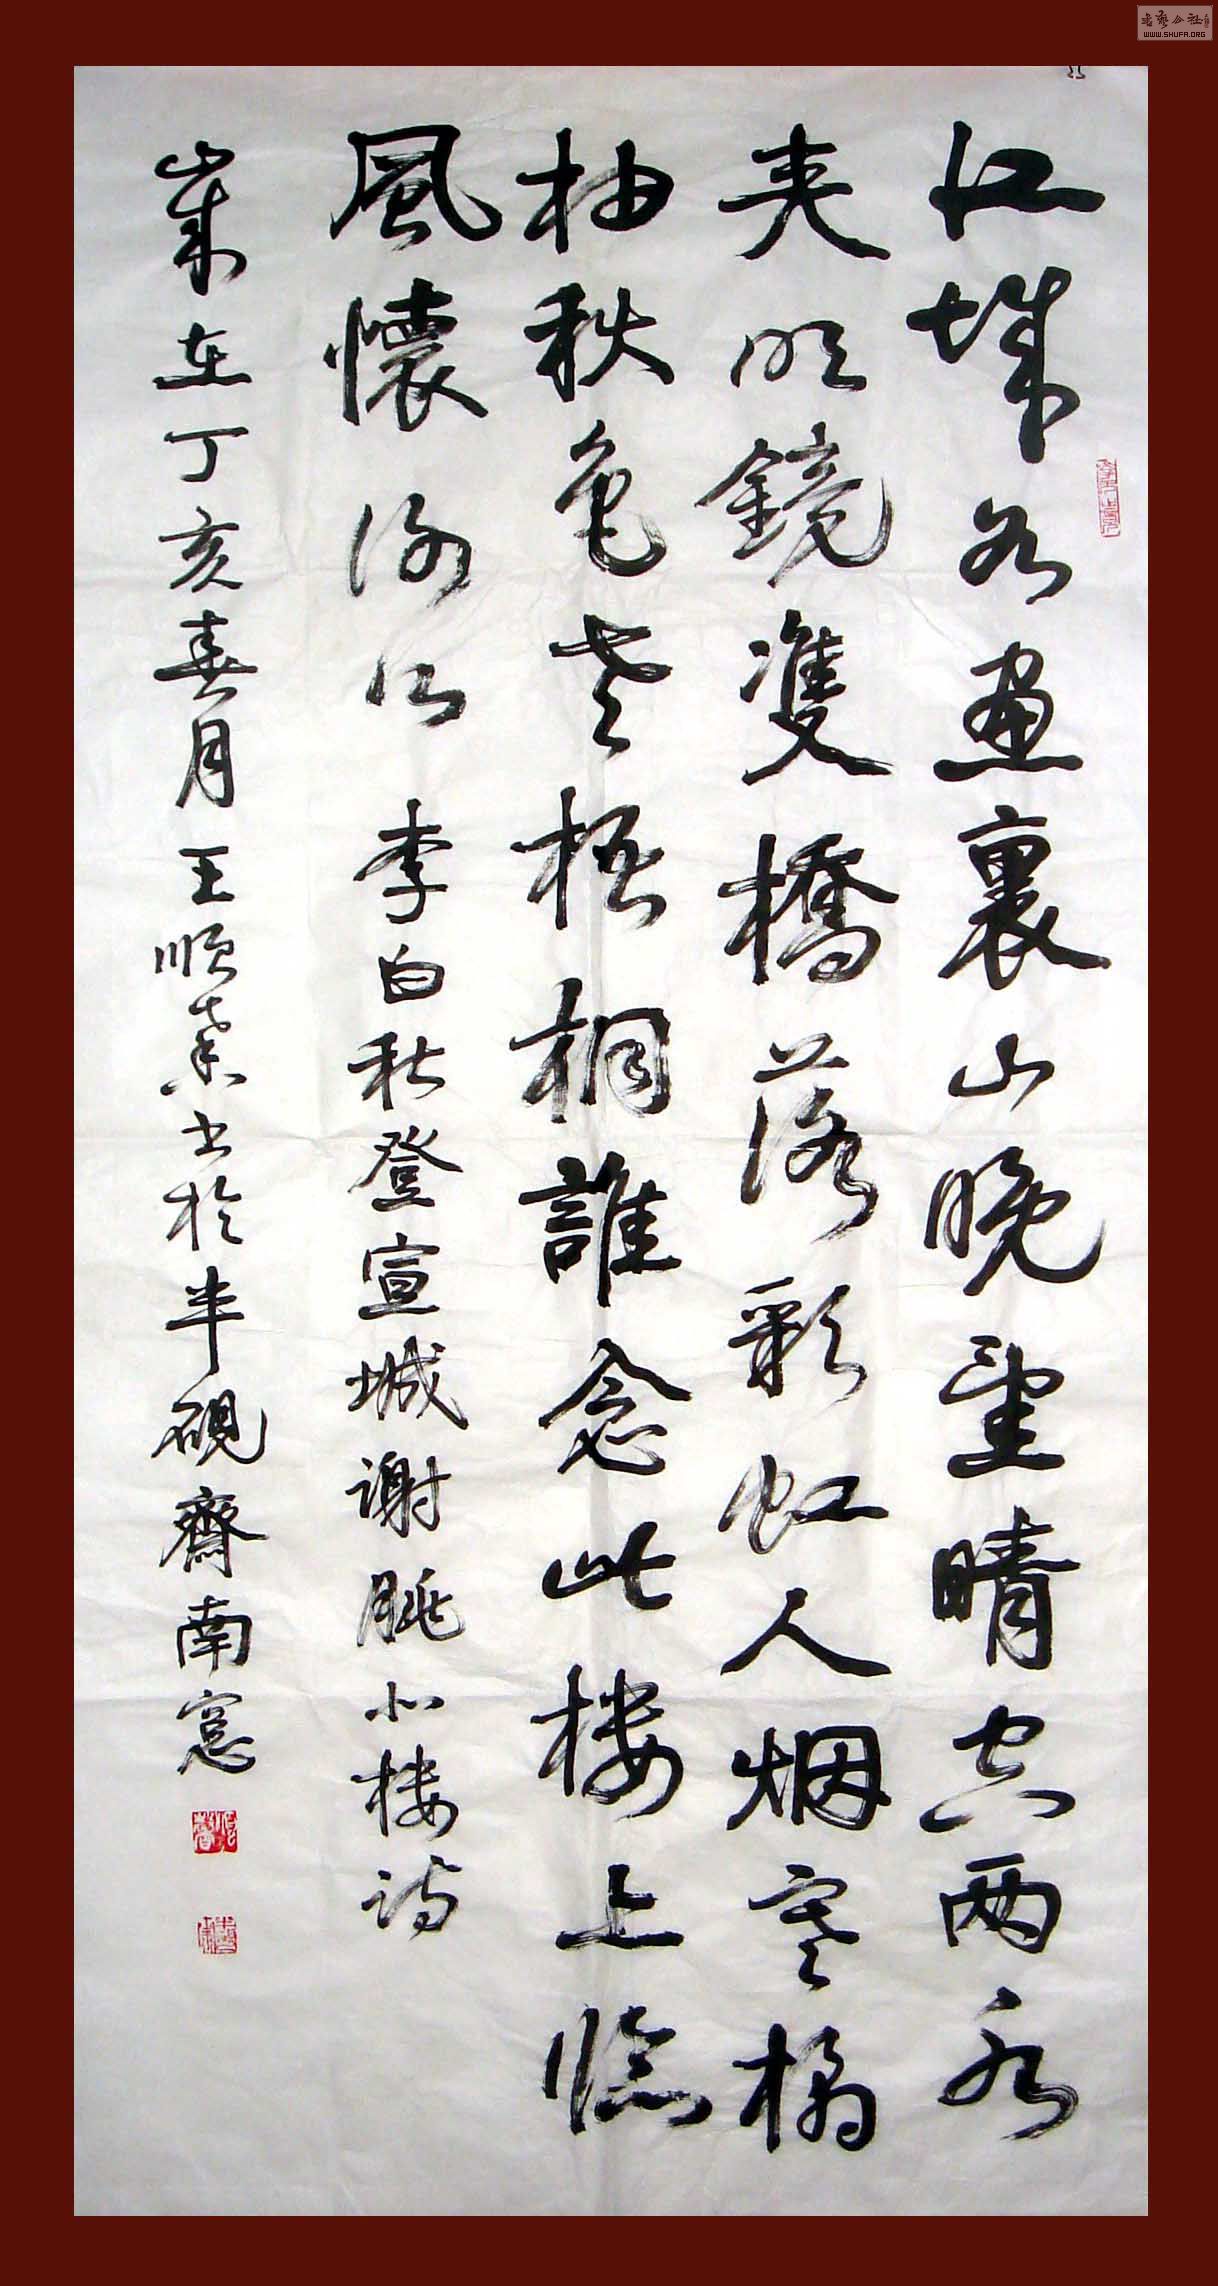 江城如畫裏山晚望晴空兩水
夾明鏡雙橋落彩虹人烟寒橘
柚秋色老梧桐誰念此樓上臨
風懷謝公 李白秋登宣城謝朓北樓詩
歲在丁亥春月王順業書於半硯齋南窓
WWW.SHUFA.ORG